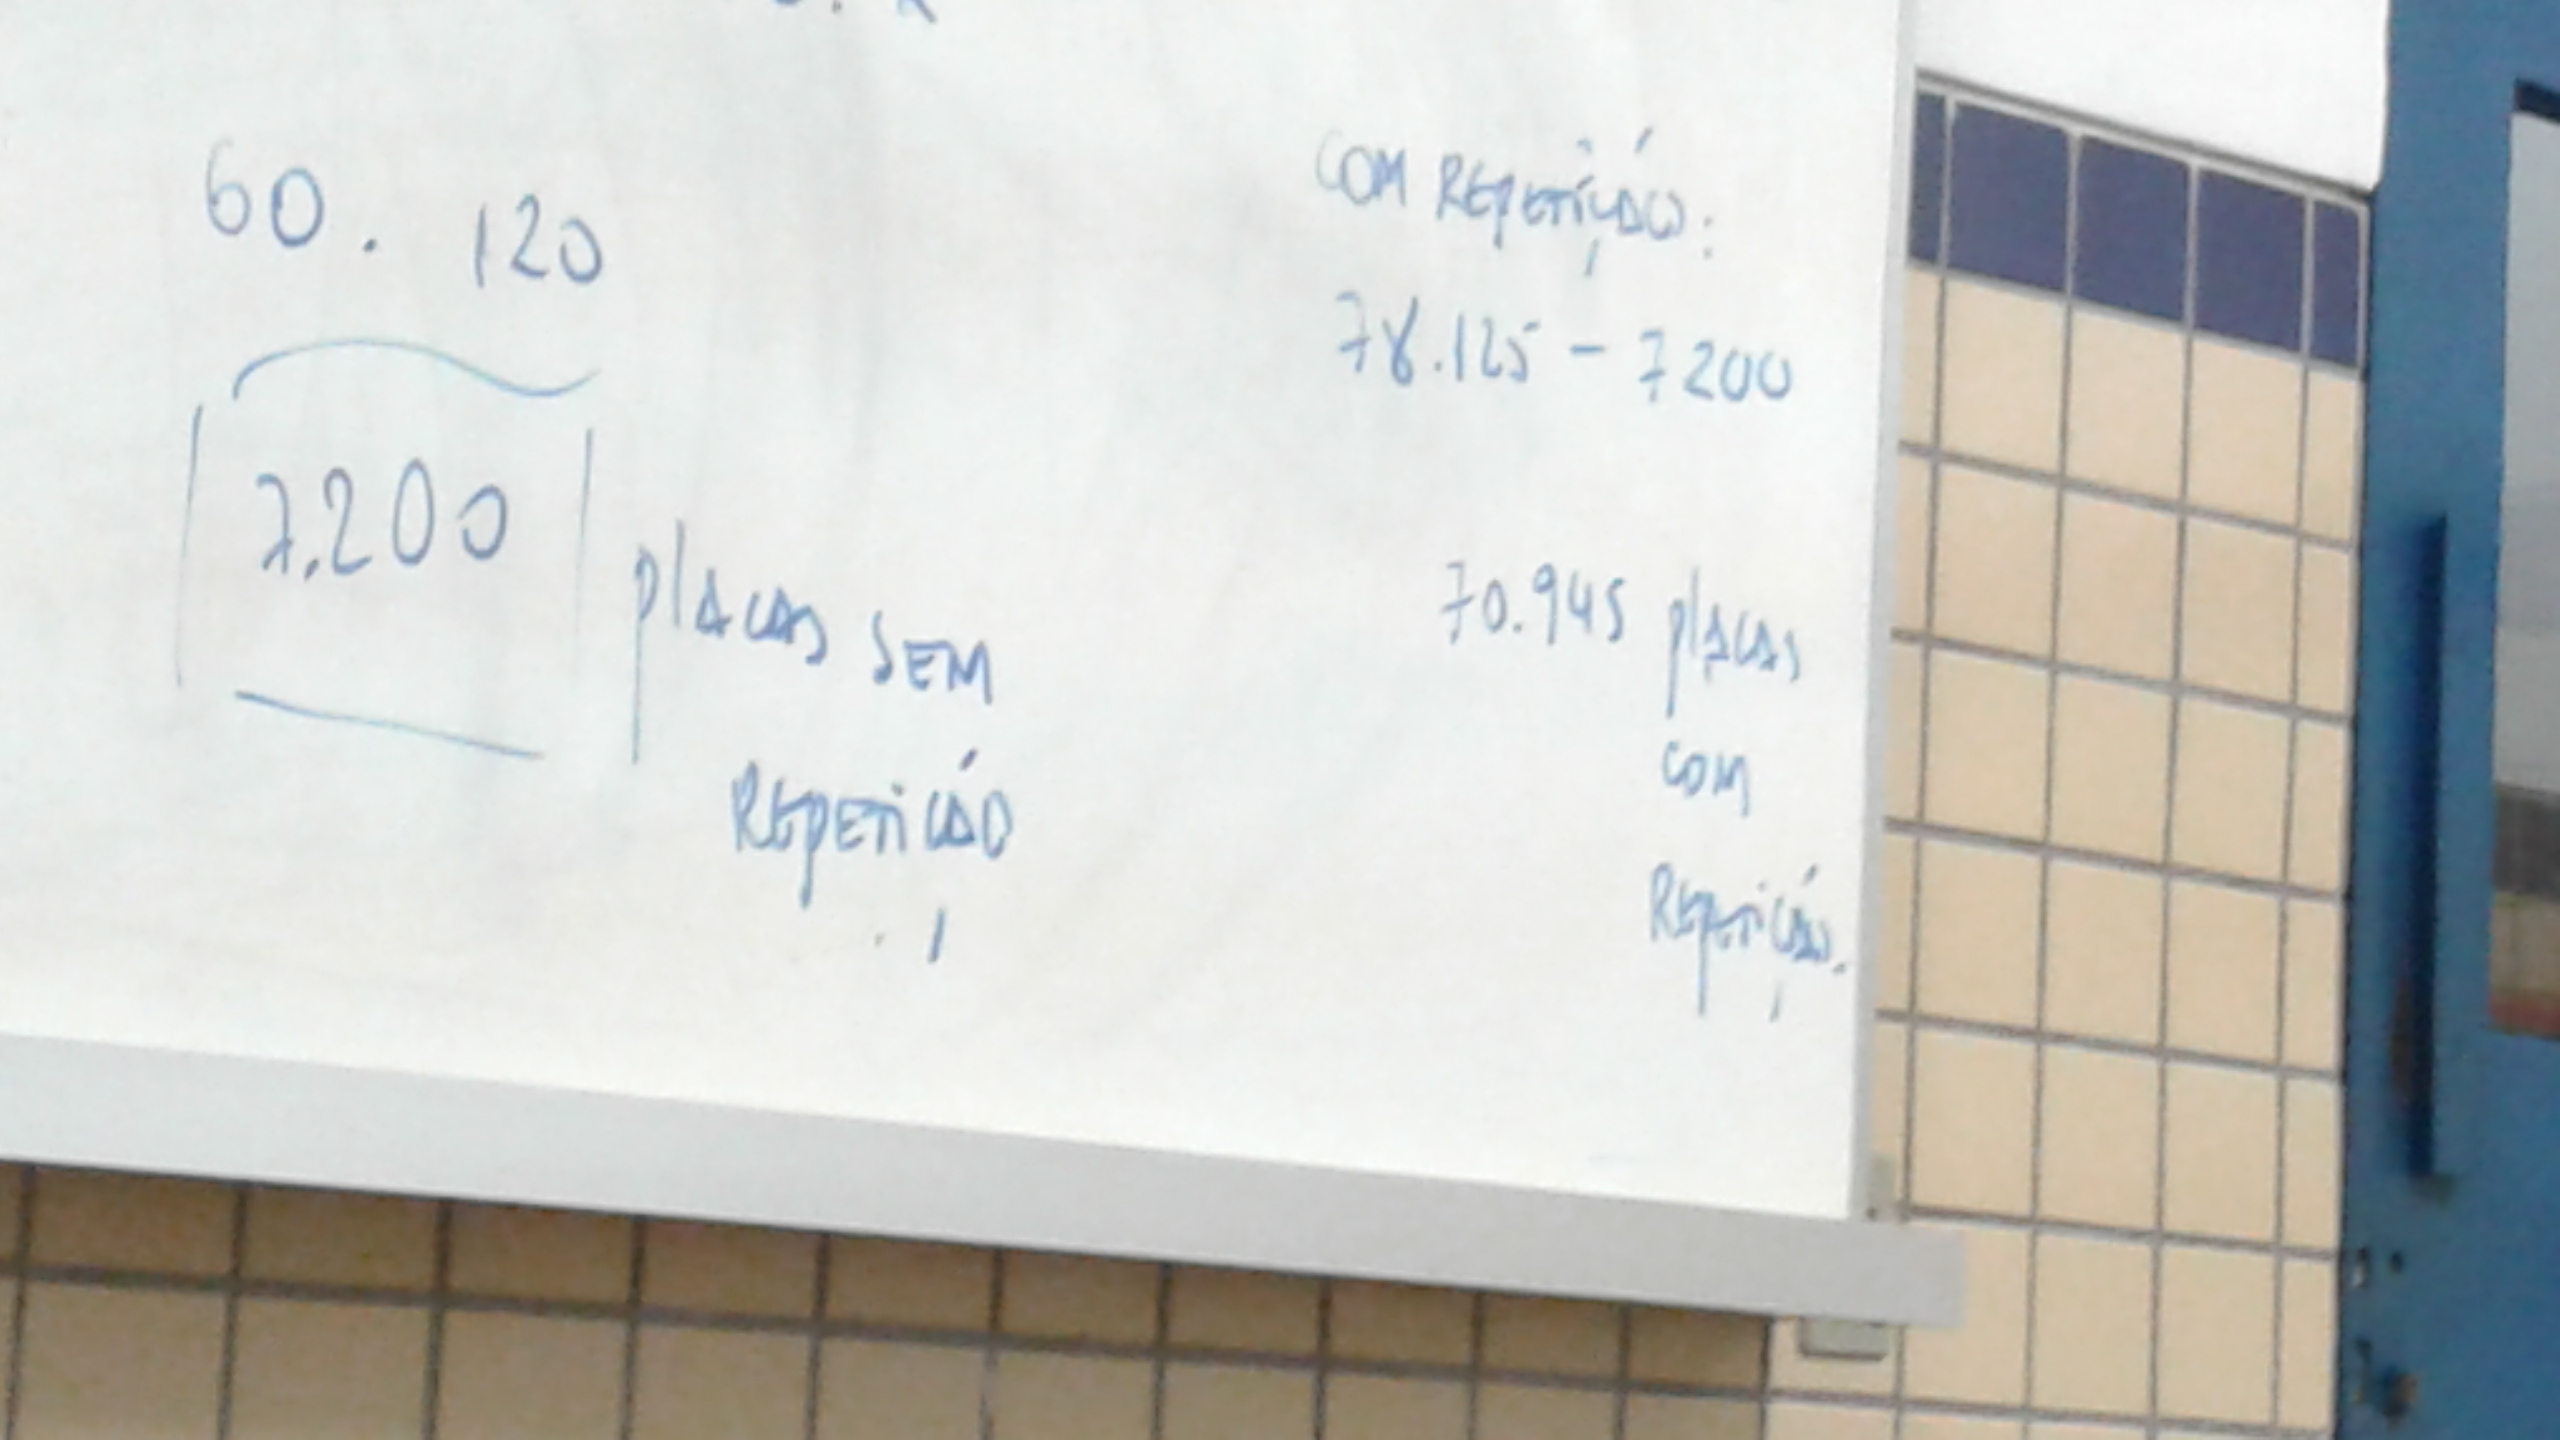 60 . 120
7.200 placas sem
repetição
com repetição:
78.125 - 7200
70.945 placas
com
repetição.